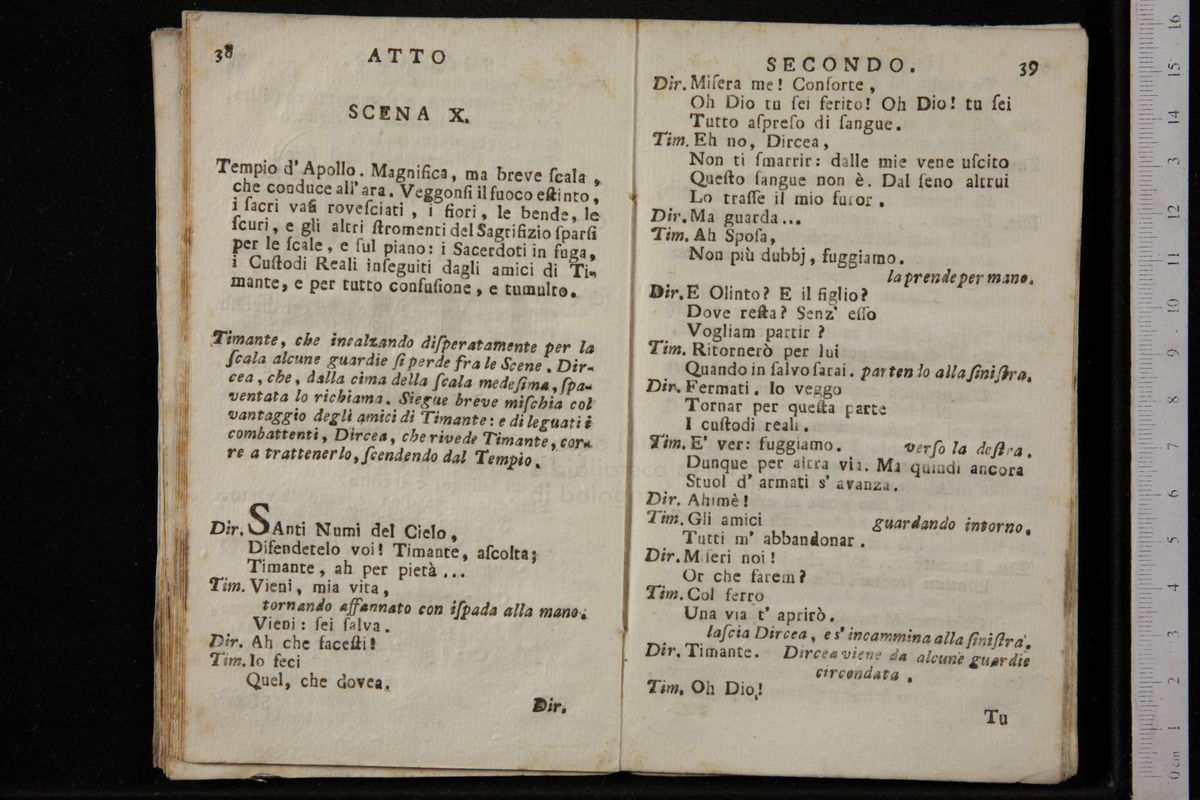 38
ATTO
SCENA X.
Tempio d'Apollo. Magnifica, ma breve ſcala,
che conduce all'ara. Veggonſi il fuoco eſtinto,
i ſacri vaſi roveſciati, i fiori, le bende, le
ſcuri, e gli altri ſtromenti del Sagrifizio ſparſi
per le ſcale, e ſul piano: i Sacerdoti in fuga,
i Cuſtodi Reali inſeguiti dagli amici di Ti-
mante, e per tutto confuſione, e tumulto.
Timante, che incalzando diſperatamente per la
ſcala alcune guardie ſi perde fra le Scene. Dir-
cea, che, dalla cima della ſcala medeſima, ſpa-
ventata lo richiama. Siegue breve miſchia col
vantaggio degli amici di Timante: e dileguati i
combattenti, Dircea, che rivede Timante, cor-
re a trattenerlo, ſcendendo dal Tempio.
Dir. SAnti Numi del Cielo,
Difendetelo voi! Timante, aſcolta;
Timante, ah per pietà...
Tim. Vieni, mia vita,
tornando affannato con iſpada alla mano.
Vieni: ſei ſalva.
Dir. Ah che faceſti!
Tim. Io feci
Quel, che dovea.
Dir.
SECONDO.
39
Dir. Miſera me! Conſorte,
Oh Dio tu ſei ferito! Oh Dio! tu ſei
Tutto aſpreſo di ſangue.
Tim. Eh no, Dircea,
Non ti ſmarrir: dalle mie vene uſcito
Queſto ſangue non è. Dal ſeno altrui
Lo traſſe il mio furor.
Dir. Ma guarda...
Tim. Ah Spoſa,
Non più dubbj, fuggiamo.
la prende per mano.
Dir. E Olinto? E il figlio?
Dove reſta? Senz' eſſo
Vogliam partir?
Tim. Ritornerò per lui
Quando in ſalvo ſarai. partendo alla ſiniſtra.
Dir. Fermati. Io veggo
Tornar per queſta parte
I cuſtodi reali.
Tim. E' ver: fuggiamo. verſo la deſtra.
Dunque per altra via. Ma quindi ancora
Stuol d' armati s' avanza.
Dir. Ahimè!
Tim. Gli amici guardando intorno.
Tutti m' abbandonar.
Dir. Miſeri noi!
Or che farem?
Tim. Col ferro
Una via t' aprirò.
laſcia Dircea, e s' incammina alla ſiniſtra.
Dir. Timante. Dircea viene da alcune guardie
circondata.
Tim. Oh Dio!
Tu